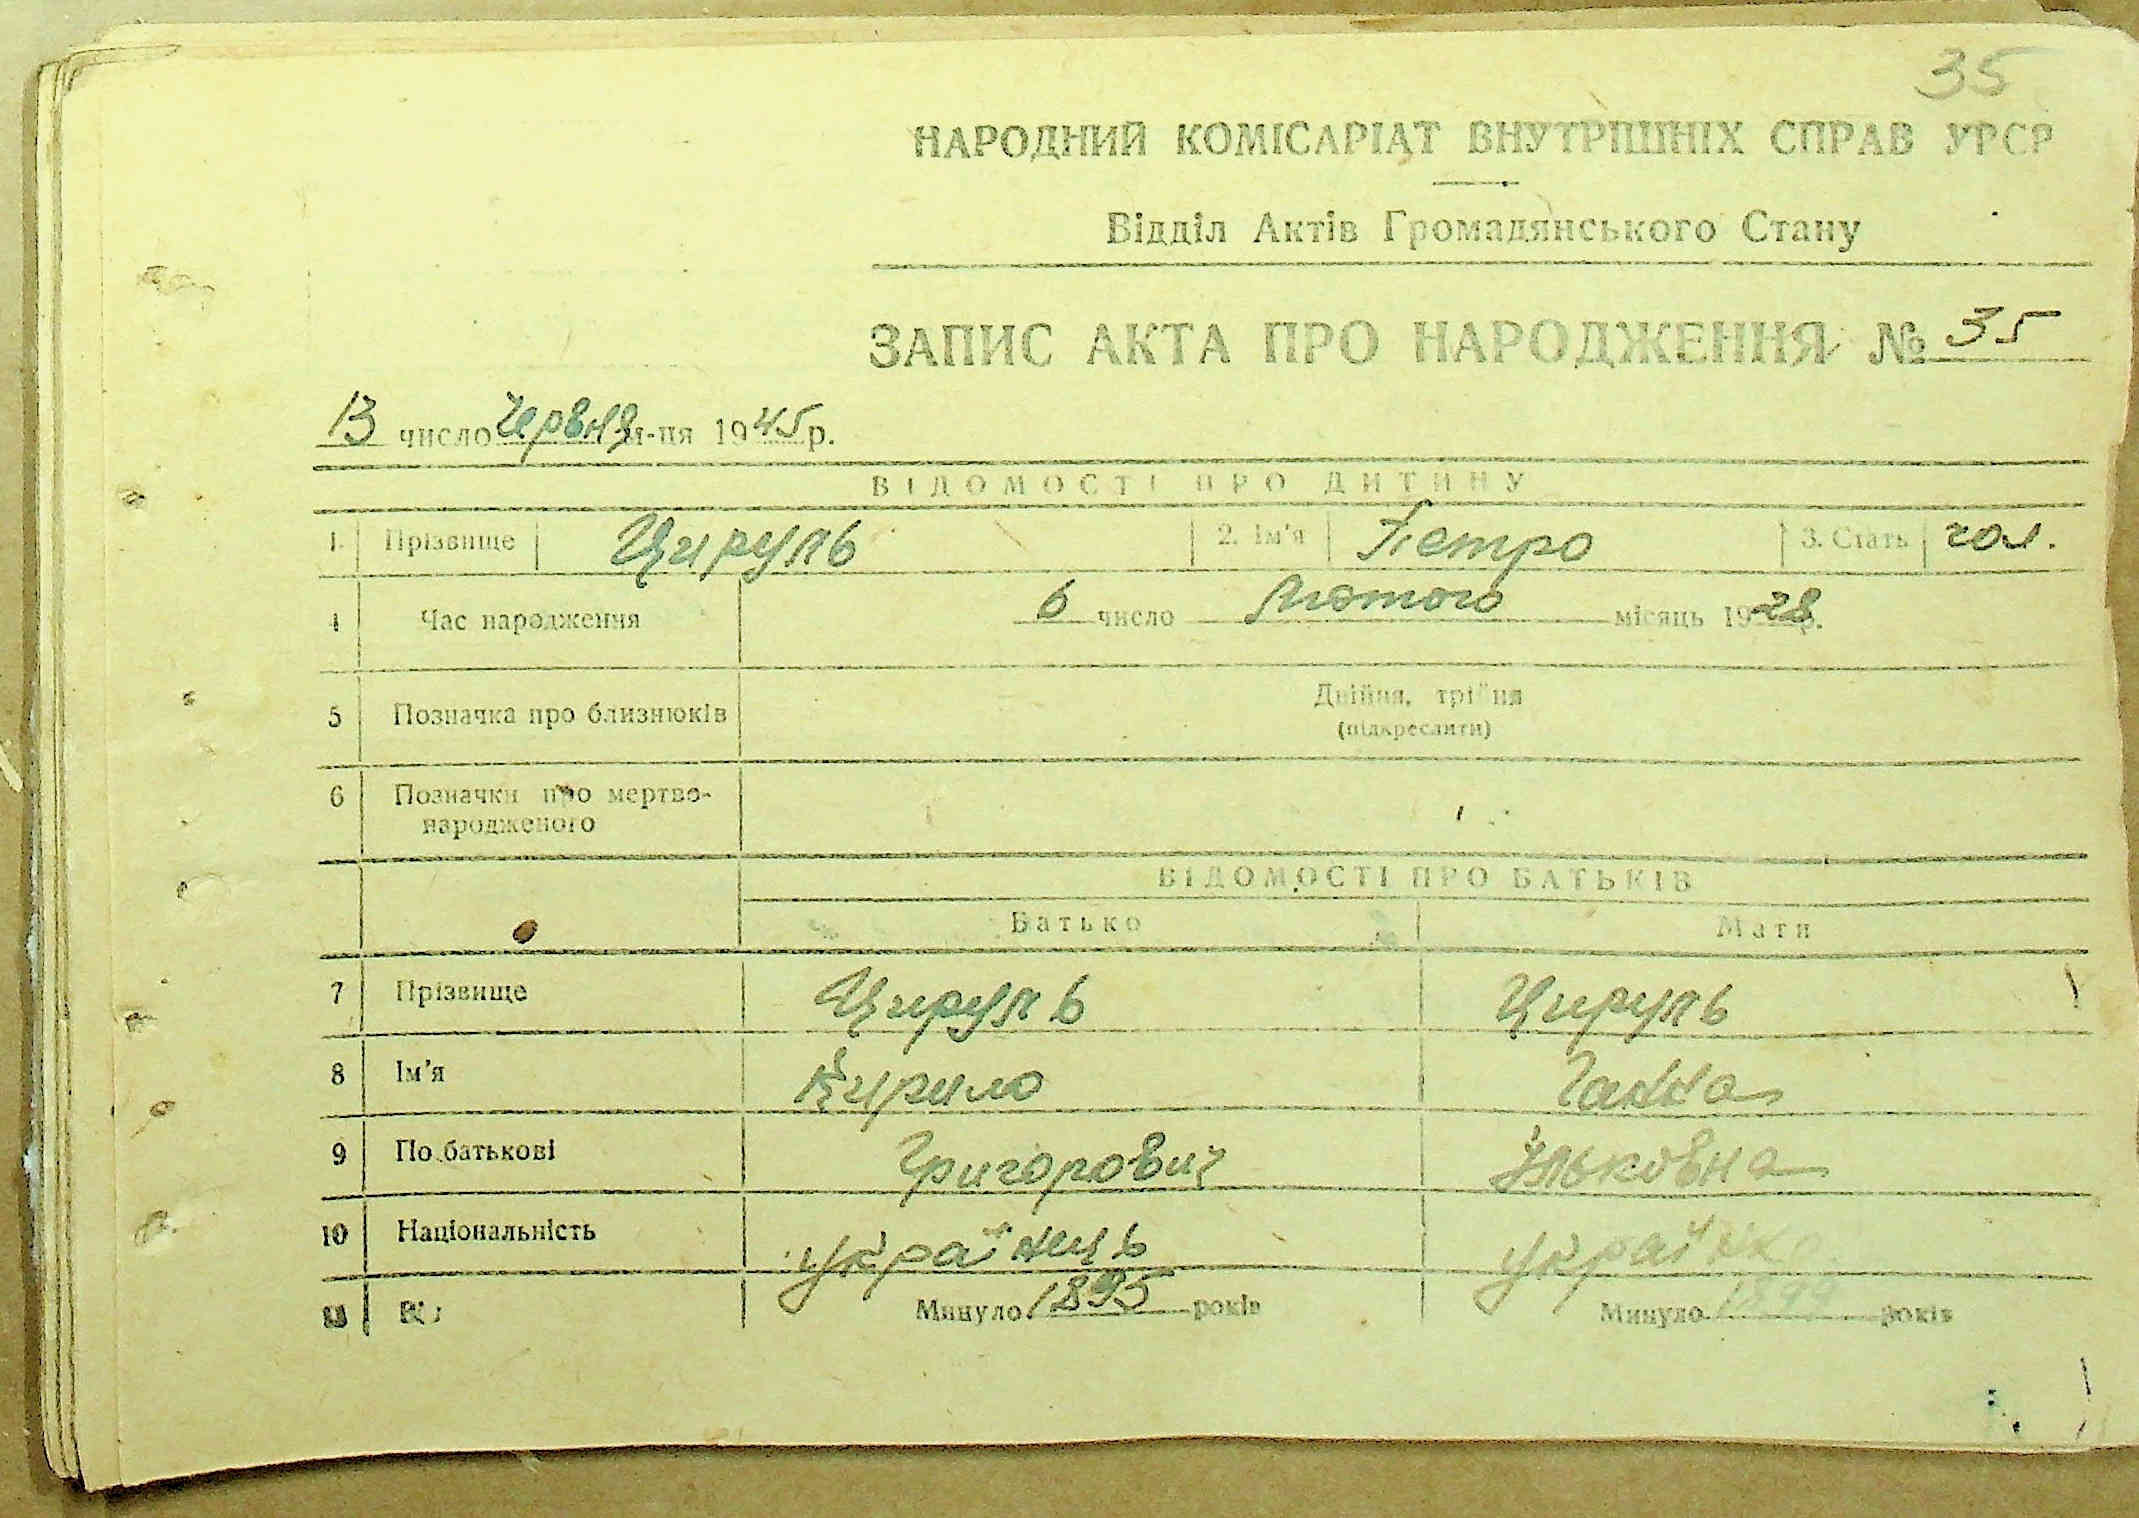 35
НАРОДНИЙ КОМІСАРІАТ ВНУТРІШНІХ СПРАВ УРСР
Відділ Актів Громадянського Стану
ЗАПИС АКТА ПРО НАРОДЖЕННЯ № 35
13 число Червня м-ця 1945 р.
ВІДОМОСТІ ПРО ДИТИНУ
1 Прізвище Цируль 2. Ім'я Петро 3. Стать чол.
4 Час народження 6 число Лютого місяць 1928 р.
5 Позначка про близнюків Двійня, трійня
(підкреслити)
6 Позначки про мертво-
народженого
ВІДОМОСТІ ПРО БАТЬКІВ
Батько Мати
7 Прізвище Цируль Цируль
8 Ім'я Кирило Ганна
9 По батькові Григорович Ільковна
10 Національність українець українка
Минуло 1895 років Минуло 1899 років